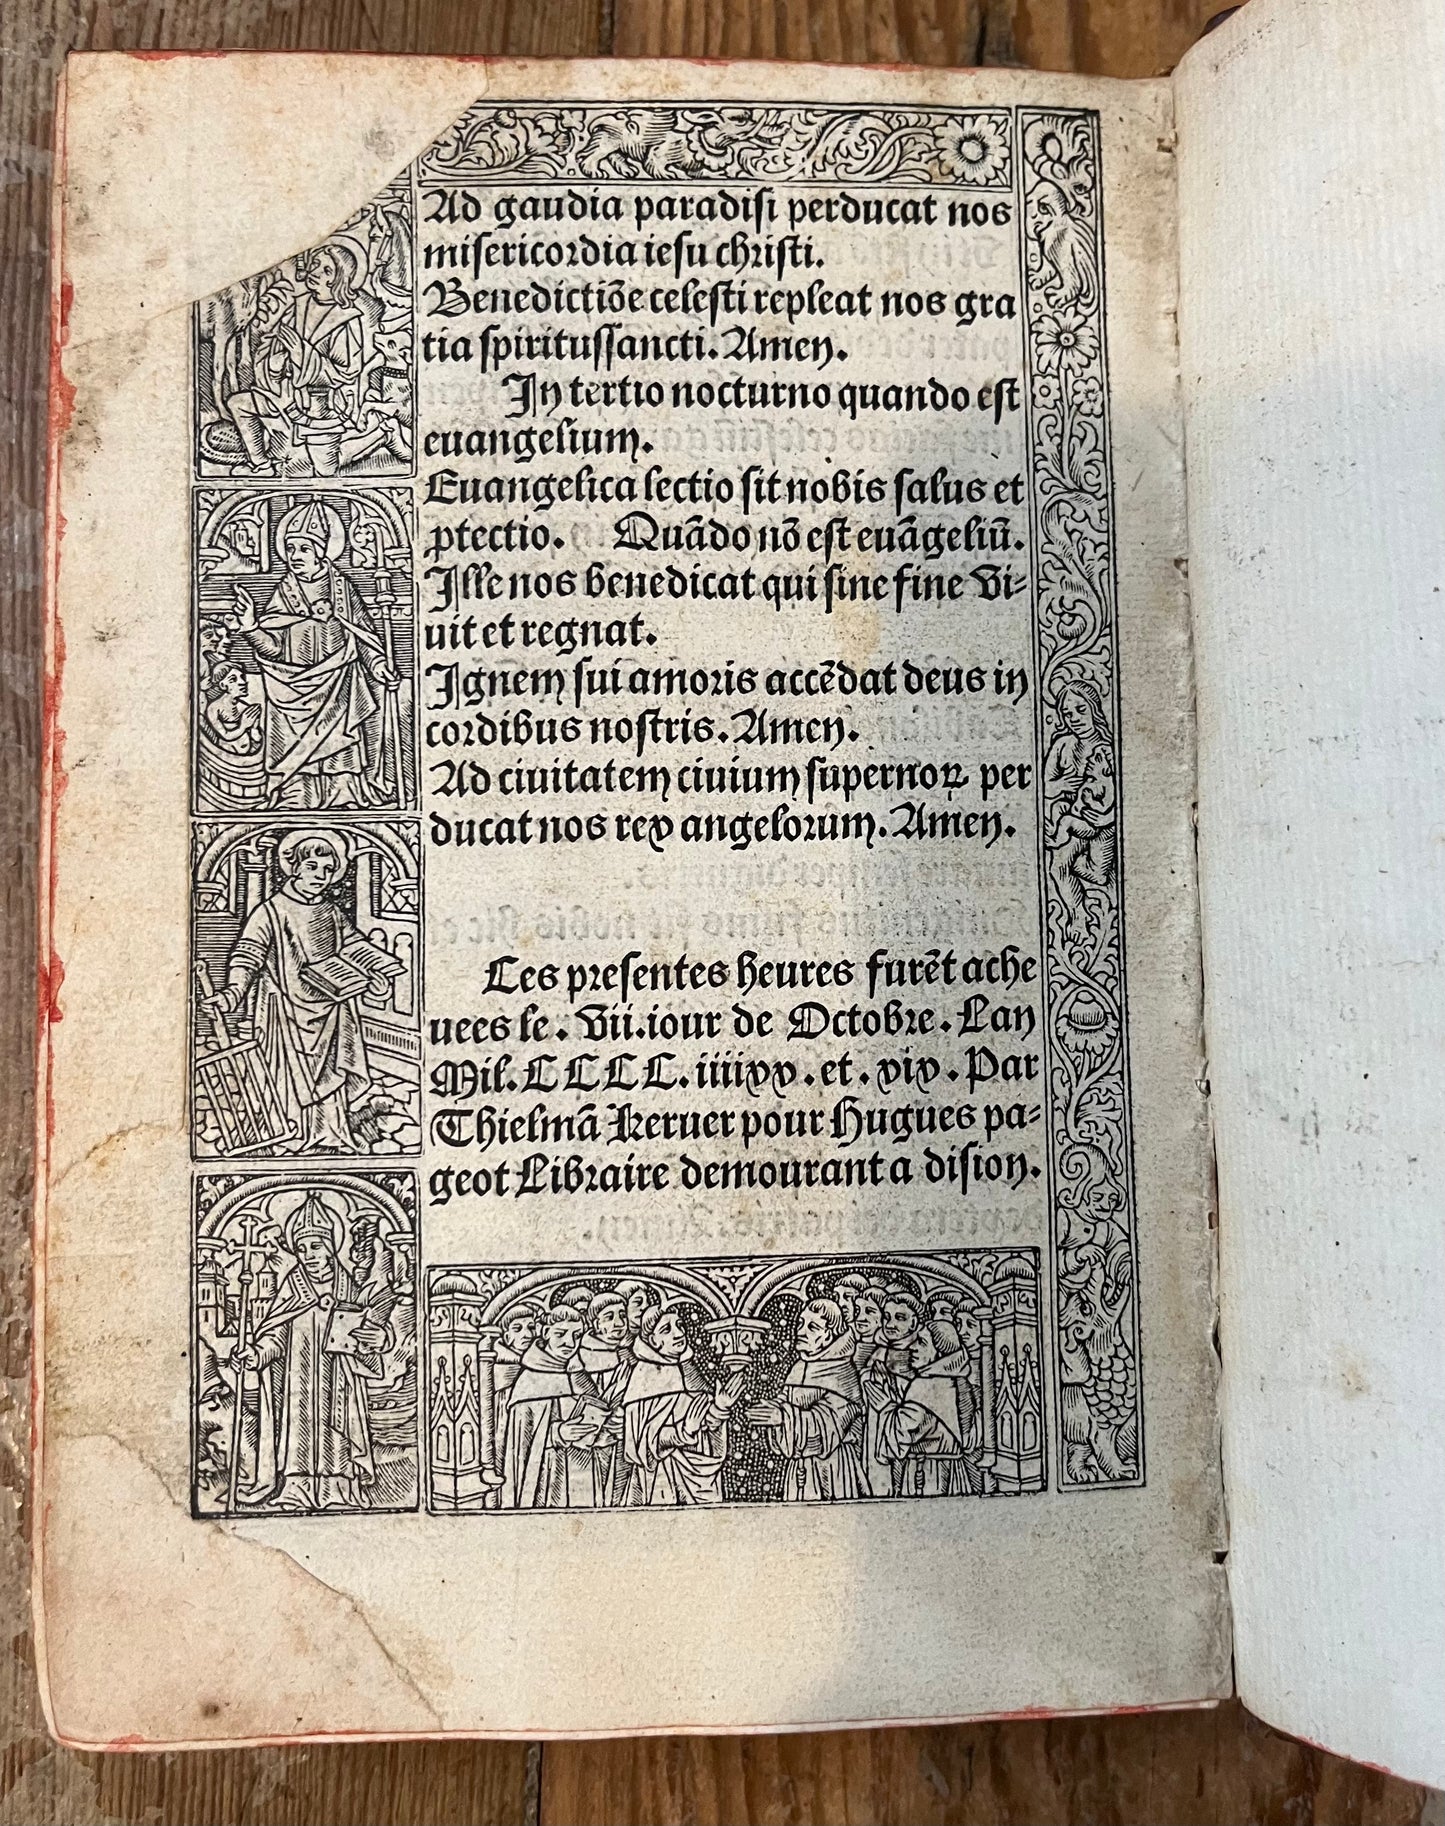 Ad gaudia paradisi perducat nos
misericordia iesu christi.
Benedictiōe celesti repleat nos gra
tia spiritussancti. Amen.
In tertio nocturno quando est
euangelium.
Euangelica lectio sit nobis salus et
ꝓtectio. Quādo nō est euāgeliū.
Ille nos benedicat qui sine fine vi-
uit et regnat.
Ignem sui amoris accēdat deus in
cordibus nostris. Amen.
Ad ciuitatem ciuium supernoꝝ per
ducat nos rex angelorum. Amen.
Ces presentes heures furēt ache
uees le. vii. iour de Octobre. Lan
Mil. CCCC. iiiixx. et. xix. Par
Thielmā Keruer pour Hugues pa-
geot Libraire demourant a dision.